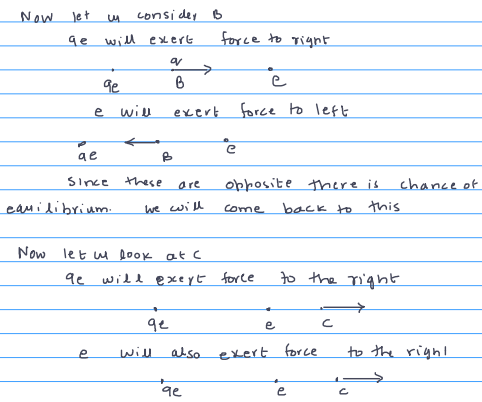 Now let us consider B
9e will exert force to right
q
9e B e
e will exert force to left
9e B e
Since these are opposite there is chance of
equilibrium. we will come back to this
Now let us look at C
9e will exert force to the right
9e e C
e will also exert force to the right
9e e C